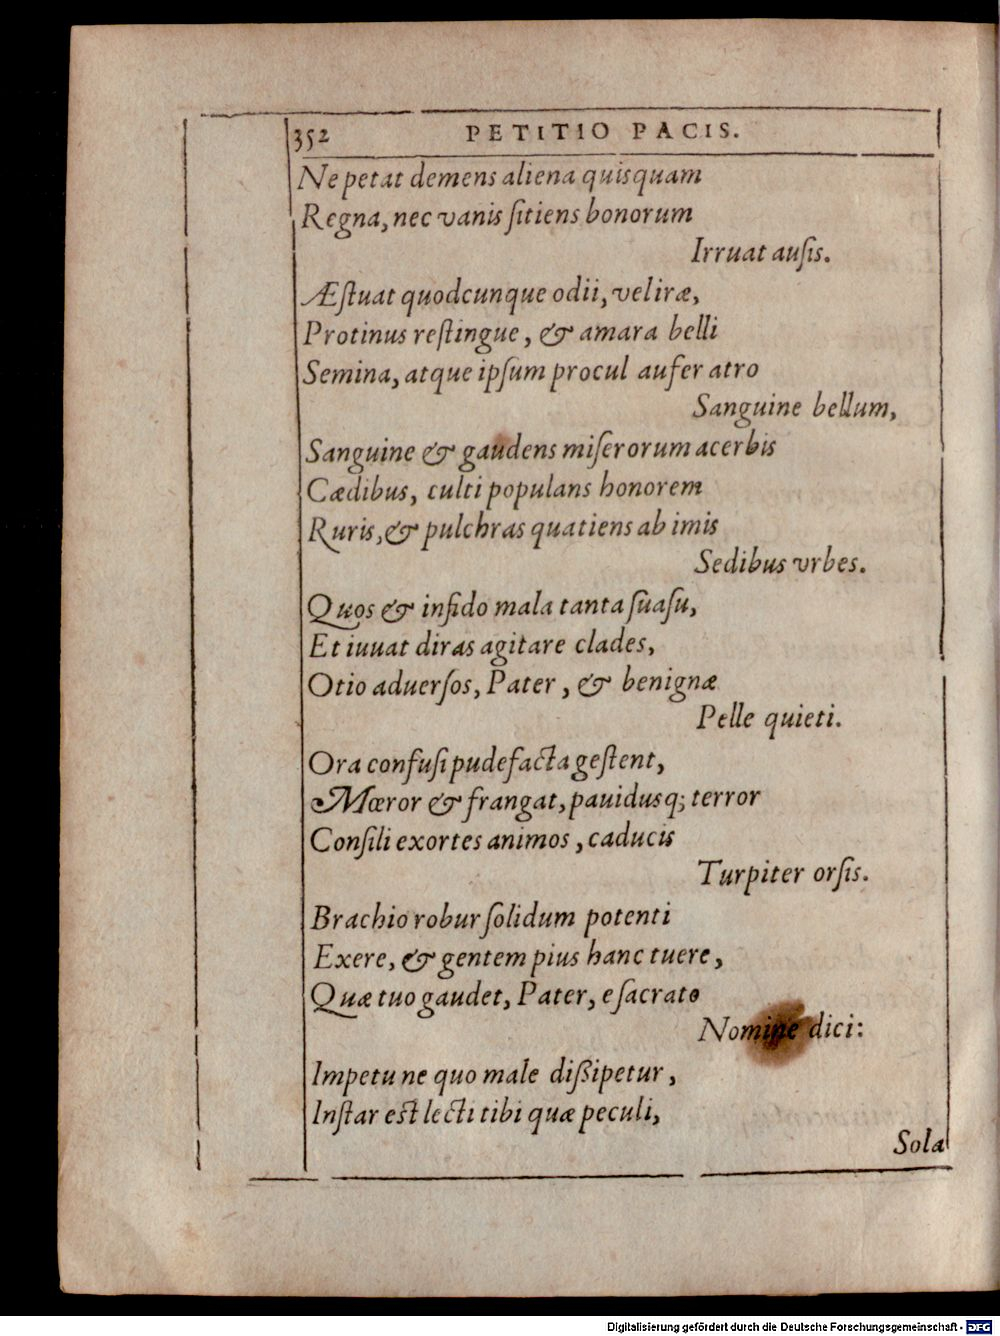 352 PETITIO PACIS.
Ne petat demens aliena quisquam
Regna, nec vanis ſitiens bonorum
Irruat auſis.
Æſtuat quodcunque odii, vel iræ,
Protinus reſtingue, & amara belli
Semina, atque ipſum procul aufer atro
Sanguine bellum,
Sanguine & gaudens miſerorum acerbis
Cædibus, culti populans honorem
Ruris, & pulchras quatiens ab imis
Sedibus vrbes.
Quos & infido mala tanta ſuaſu,
Et iuuat diras agitare clades,
Otio aduerſos, Pater, & benignæ
Pelle quieti.
Ora confuſi pudefacta geſtent,
Mœror & frangat, pauidusq; terror
Conſili exortes animos, caducis
Turpiter orſis.
Brachio robur ſolidum potenti
Exere, & gentem pius hanc tuere,
Quæ tuo gaudet, Pater, e ſacrato
Nomine dici:
Impetu ne quo male diſsipetur,
Inſtar eſt lecti tibi quæ peculi,
Sola
Digitalisierung gefördert durch die Deutsche Forschungsgemeinschaft - DFG